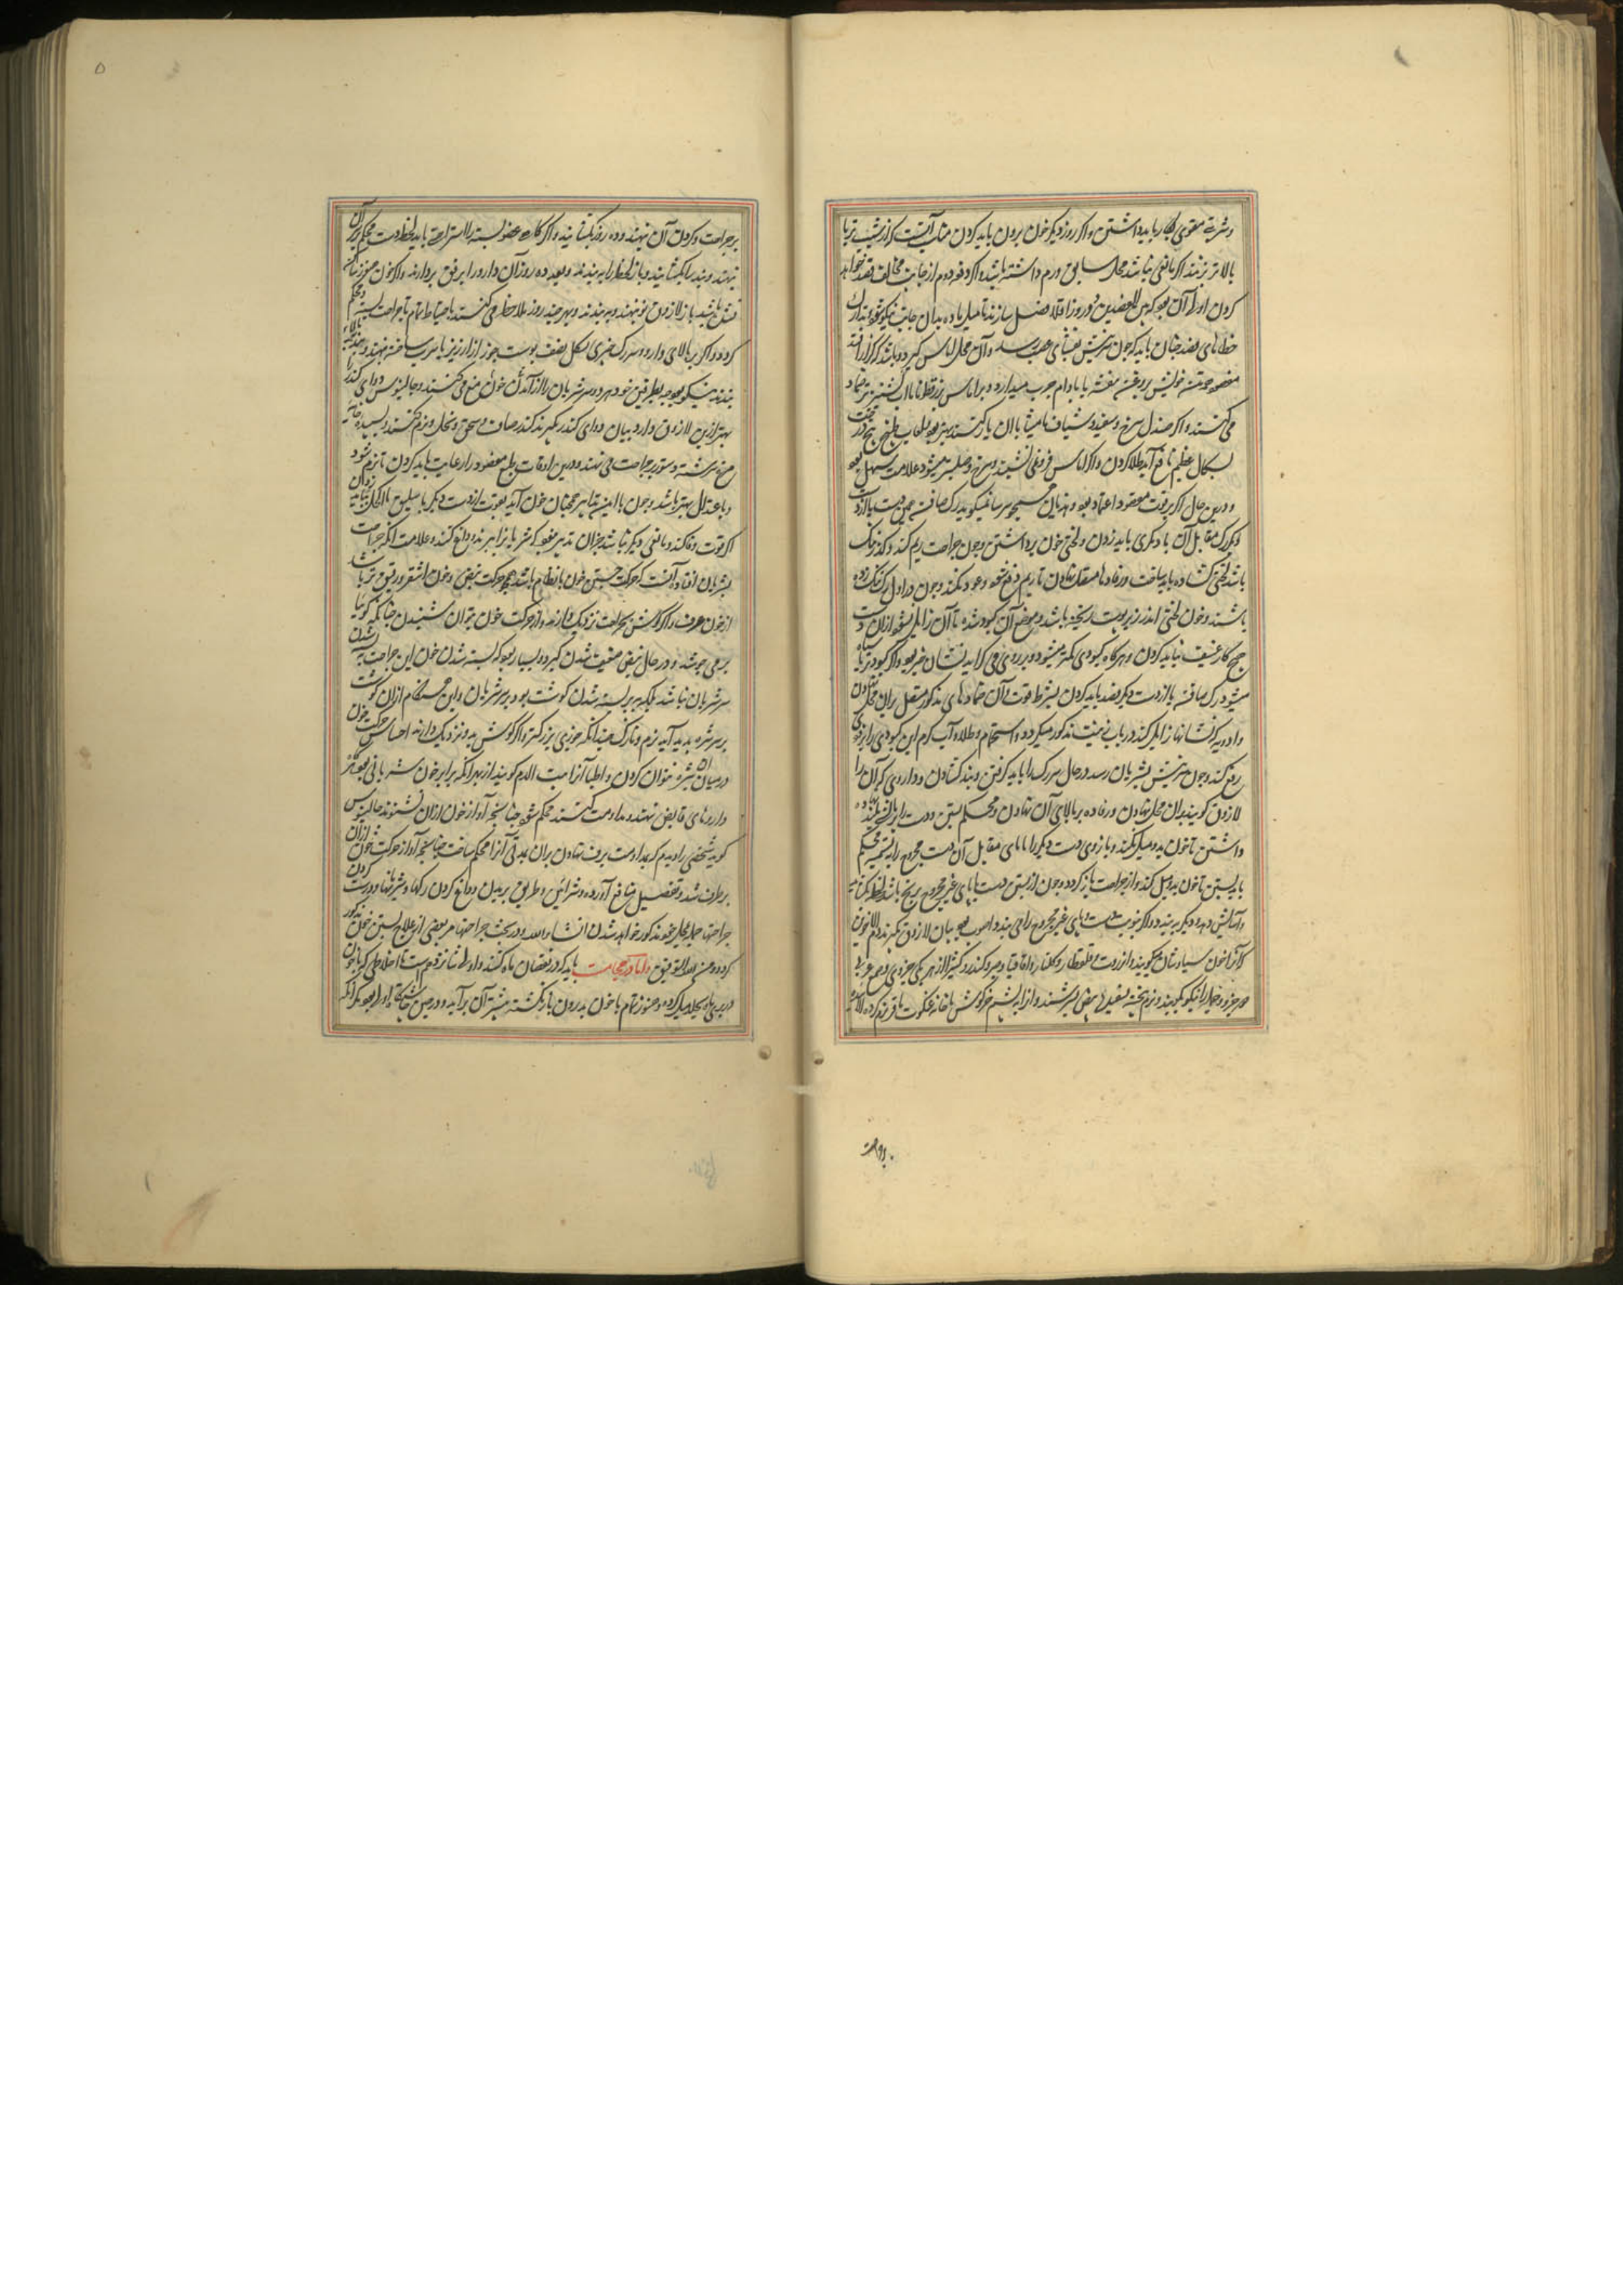 و شربة مقوی بکار باید داشتن و اگر روز دیگر خون برون باید کردن آنست که از شب
بالاتر زنند اگر مانعی نباشد محل سابق ورم داشته باشد و اگر دفعه دوم از جانب مخالف فصد خواهد
کردن اولی آن بود که میان فصدین دو روز اقلا فصل سازند تا میل ماده بدان جانب نیکو شود
خطاهای فصد چنان باید که چون نیش بعصب رسد و آن محل اماس گیرد و باشد که کزاز افتد
موضع خویش بروغن بنفشه یا بادام چرب میدارد و بر اماس بزرقطونا با آب گشنیز تر ضماد
می کنند و اگر صندل سرخ و سفید و شیاف مامیثا با آن یار کنند بهتر بود
بشکل عظیم نافع آید طلا کردن و اگر اماس فرو ننشیند و سرخ و صلب تر میشود علامت سهل بود
و درین حال اگر بر قوت مفصود اعتماد بود و هذیان سرسام نمیگوید رگ صافن
و دیگر رگ مقابل آن باید زدن و لختی خون برداشتن و چون جراحت ریم کند و گذر تنک
باشد لختی گشاده باید ساخت و رفادها مستقل نهادن تا ریم دفع شود و عود نکند و چون در اول رگ تنک زده
باشند و خون لختی اندر زیر پوست ریخته باشد و موضع آن کبود شده تا آن زایل شود ازان دست
هیچ کار عنیف نباید کردن و هرگاه کبودی کمتر میشود و بزردی می گراید نشان خیر بود و اگر کبودتر یا سیاه
میشود رگ صافن یا از دست دیگر فصد باید کردن بشرط قوت و آن ضمادهای مذکور مستقل بران محل نهادن
و ادویه که نشانها زایل کند در باب زینت مذکور میگردد و استحمام و طلا و آب گرم این کبودی را بزودی
رفع کند و چون نیش بشریان رسد در حال سر رگ را باید گرفتن و بند گشادن و داروی که آن را
لازوق گویند بدان محل نهادن و رفاده بر بالای آن نهادن و محکم بستن و دست را بر بالین بلند نهاده
داشتن تا خون بدو میل نکند و بازوی دست دیگر را یا پای مقابل آن دست مجروح را نیز محکم
باید بستن تا خون بدو میل کند و از جراحت باز گردد و چون از بستن دست یا پای غیر مجروح برنج باشد لحظه بگشاید
و آسایش دهد و دیگر ببندد و اگر بنوبت دست و پای غیر مجروح را می بندد اصوب بود بیان لازوق بگیرند دم الاخوین
که آنرا خون سیاوشان گویند و انزروت و قلقطار و گلنار و اقاقیا و صبر و کندر و کتیرا از هر یکی جزوی و صمغ عربی
دو جزو و جمله را نیکو بکوبند و نرم پخته بسفیده بیض بسرشند و از آن پشم خرگوش یا خانه عنکبوت یا قز نرم کرده آلایند
بر جراحت
بر جراحت و گردن آن نهند و ده روز نگشایند و اگر گاهی عضو بسته را استراحت باید لحظه دست محکم بر آن
نهند و بند را بگشایند و باز لحظه را ببندند و بعد ده روز آن دارو را برفق بردارند و اگر خون هنوز ساکن
نشده باشد باز لازوق نو نهند و ببندند و بهر چند روز ملاحظه می کنند باحتیاط تمام تا جراحت بسته و محکم
گردد و اگر بر بالای دارو و سر رگ چیزی بشکل نصف پوست جوز از ارزیز یا سرب ساخته بنهند
بندند نیکو بود چه بطرفین خود هر دو سر شریان را از آمدن خون منع می کنند و جالینوس دوای کندر را
بهتر ازین لازوق دارد بیان دوای کندر بگیرند کندر صاف و سحق و نخل و نرم کنند و بسپیده خایه
مرغ سرشته و دستور بر جراحت می نهند و درین اوقات طبع مفصود را رعایت باید کردن تا نرم شود
و باعتدال بهتر باشد و چون با این تدابیر همچنان خون آید بقوت از دست دیگر باسلیق یا اکحل باید زدن
اگر قوت وفا کند و مانعی دیگر نباشد بجز آن تدبیر نبود که شریان را ببرند و داغ کنند و علامت آنکه جراحت
بشریان افتاده آنست که حرکت جستن خون بانظام باشد همچو حرکت نبض و خون اشقر و رقیق تر باشد
از خون صرف و اگر گوش بجراحت نزدیک دارند آواز حرکت خون توان شنیدن چنانکه گویا
بر می جوشد و در حال نبض ضعیف شدن گیرد و بسیار بود که بسته شدن خون این جراحت به بسته شدن
سر شریان نباشد بلکه به بر بسته شدن گوشت بود بر سر شریان و این هنگام ازان گوشت
بر سر شره پدید آید نرم و نازک چندانکه جوزی بزرگتر و اگر گوش بدو نزدیک دارند احساس حرکت خون
در میان آن شره توان کردن و اطبا آنرا میت الدم گویند از بهر آنکه برابر خون شریانی بود و اگر
داروهای قابض نهند و مداومت کنند محکم شود چنانچه آواز خون ازان نشنوند جالینوس
گوید شخصی را دیدم که بمداومت برف نهادن بران مدتی آنرا محکم ساخت چنانچه آواز حرکت خون ازان
برطرف شد و تفصیل منافع آورده و شرائین و طریق بریدن و داغ کردن رگها و شریانها و درست کردن
جراحتها جمله بمحل خود مذکور خواهد شدن انشاء الله و در بحث جراحتها هم بعضی از علاج بستن خون مذکور
گردد و من الله التوفیق و اما در حجامت باید که در نقصان ماه کنند و اولی شانزدهم است تا اخلاطی که با خون
در بدن باشد بجلد میل کرده و هنوز تمام با خون بدرون باز نگشته بیشتر آن برآید و در حین